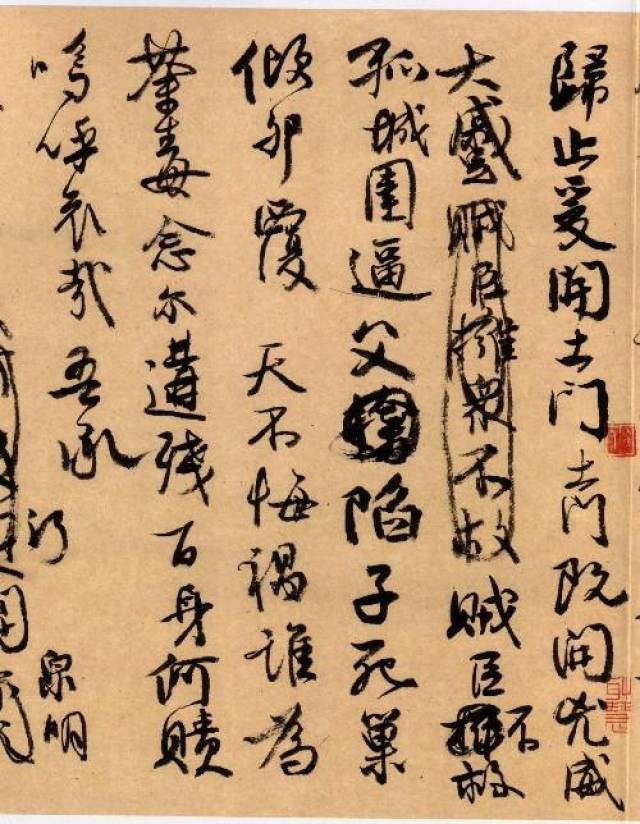 歸止爰開土門土門既開凶威
大蹙賊臣擁眾不救賊臣不救
孤城圍逼父陷子死巢
傾卵覆天不悔禍誰為
荼毒念爾遘殘百身何贖
嗚呼哀哉吾承
泉明